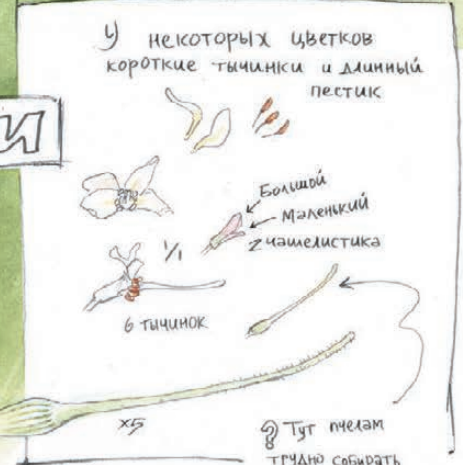 И
У некоторых цветков
короткие тычинки и длинный
пестик
Большой
Маленький
2 чашелистика
1/1
6 тычинок
x5
? Тут пчелам
трудно собирать